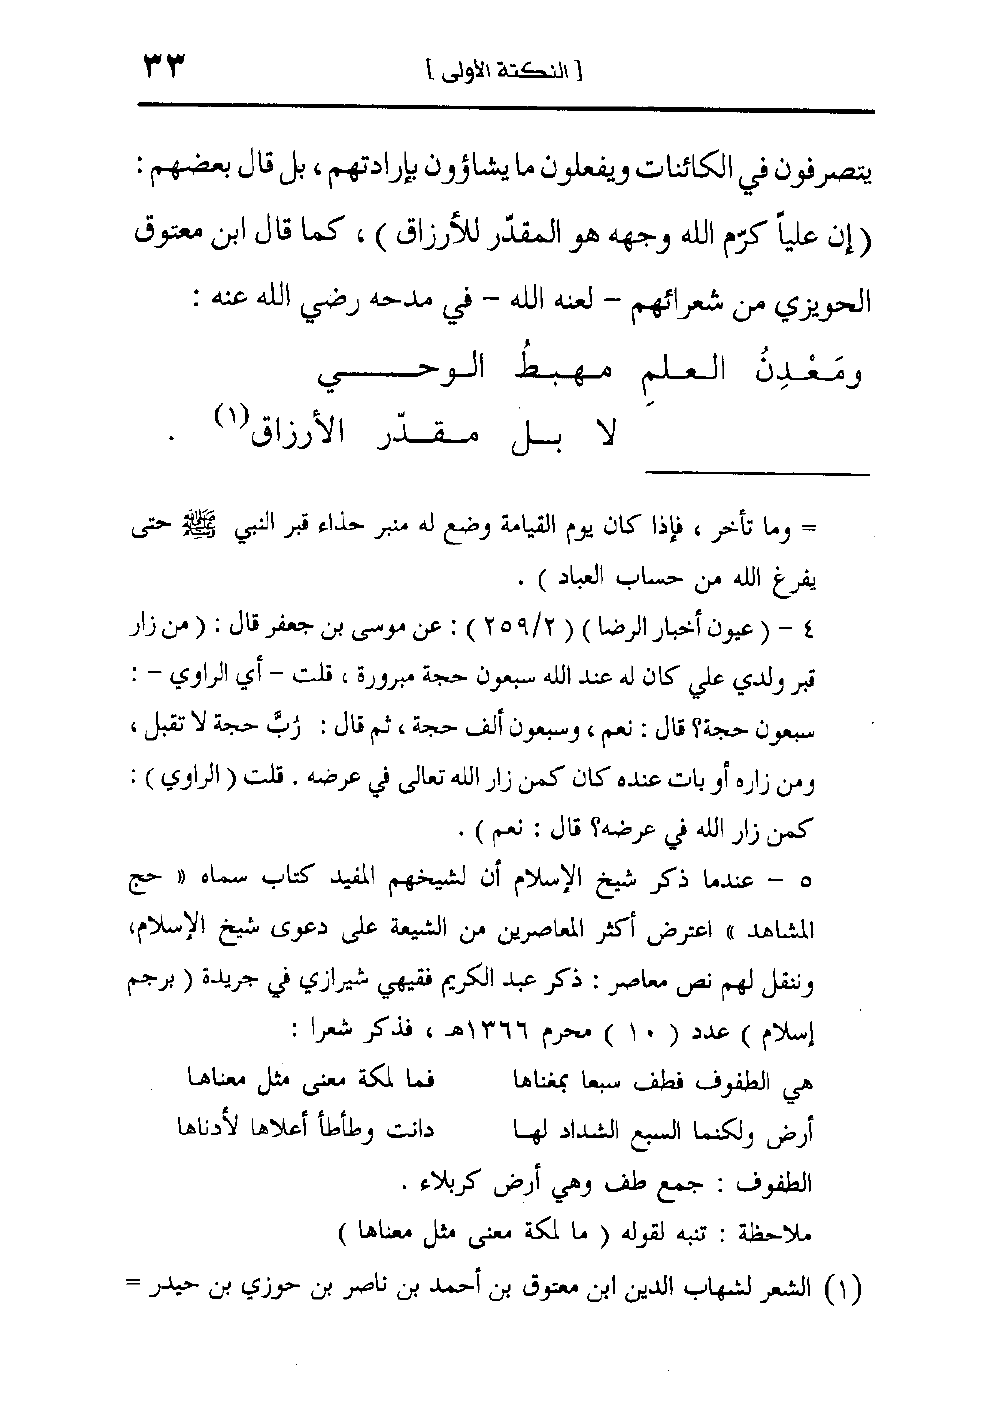 [ النكتة الأولى ] ٣٣
يتصرفون في الكائنات ويفعلون ما يشاؤون بإرادتهم ، بل قال بعضهم :
( إن علياً كرّم الله وجهه هو المقدّر للأرزاق ) ، كما قال ابن معتوق
الحويزي من شعرائهم – لعنه الله – في مدحه رضي الله عنه :
ومَعْدِنُ العلمِ مهبطُ الوحي
لا بل مقدّر الأرزاق(١) .
= وما تأخر ، فإذا كان يوم القيامة وضع له منبر حذاء قبر النبي ﷺ حتى
يفرغ الله من حساب العباد ) .
٤ – ( عيون أخبار الرضا ) ( ٢٥٩/٢ ) : عن موسى بن جعفر قال : ( من زار
قبر ولدي علي كان له عند الله سبعون حجة مبرورة ، قلت – أي الراوي – :
سبعون حجة؟ قال : نعم ، وسبعون ألف حجة ، ثم قال : رُبَّ حجة لا تقبل ،
ومن زاره أو بات عنده كان كمن زار الله تعالى في عرضه . قلت ( الراوي ) :
كمن زار الله في عرضه؟ قال : نعم ) .
٥ – عندما ذكر شيخ الإسلام أن لشيخهم المفيد كتاب سماه « حج
المشاهد » اعترض أكثر المعاصرين من الشيعة على دعوى شيخ الإسلام،
وننقل لهم نص معاصر : ذكر عبد الكريم فقيهي شيرازي في جريدة ( برجم
إسلام ) عدد ( ١٠ ) محرم ١٣٦٦هـ ، فذكر شعرا :
هي الطفوف فطف سبعا بمغناها فما لمكة معنى مثل معناها
أرض ولكنما السبع الشداد لها دانت وطأطأ أعلاها لأدناها
الطفوف : جمع طف وهي أرض كربلاء .
ملاحظة : تنبه لقوله ( ما لمكة معنى مثل معناها )
(١) الشعر لشهاب الدين ابن معتوق بن أحمد بن ناصر بن حوزي بن حيدر =